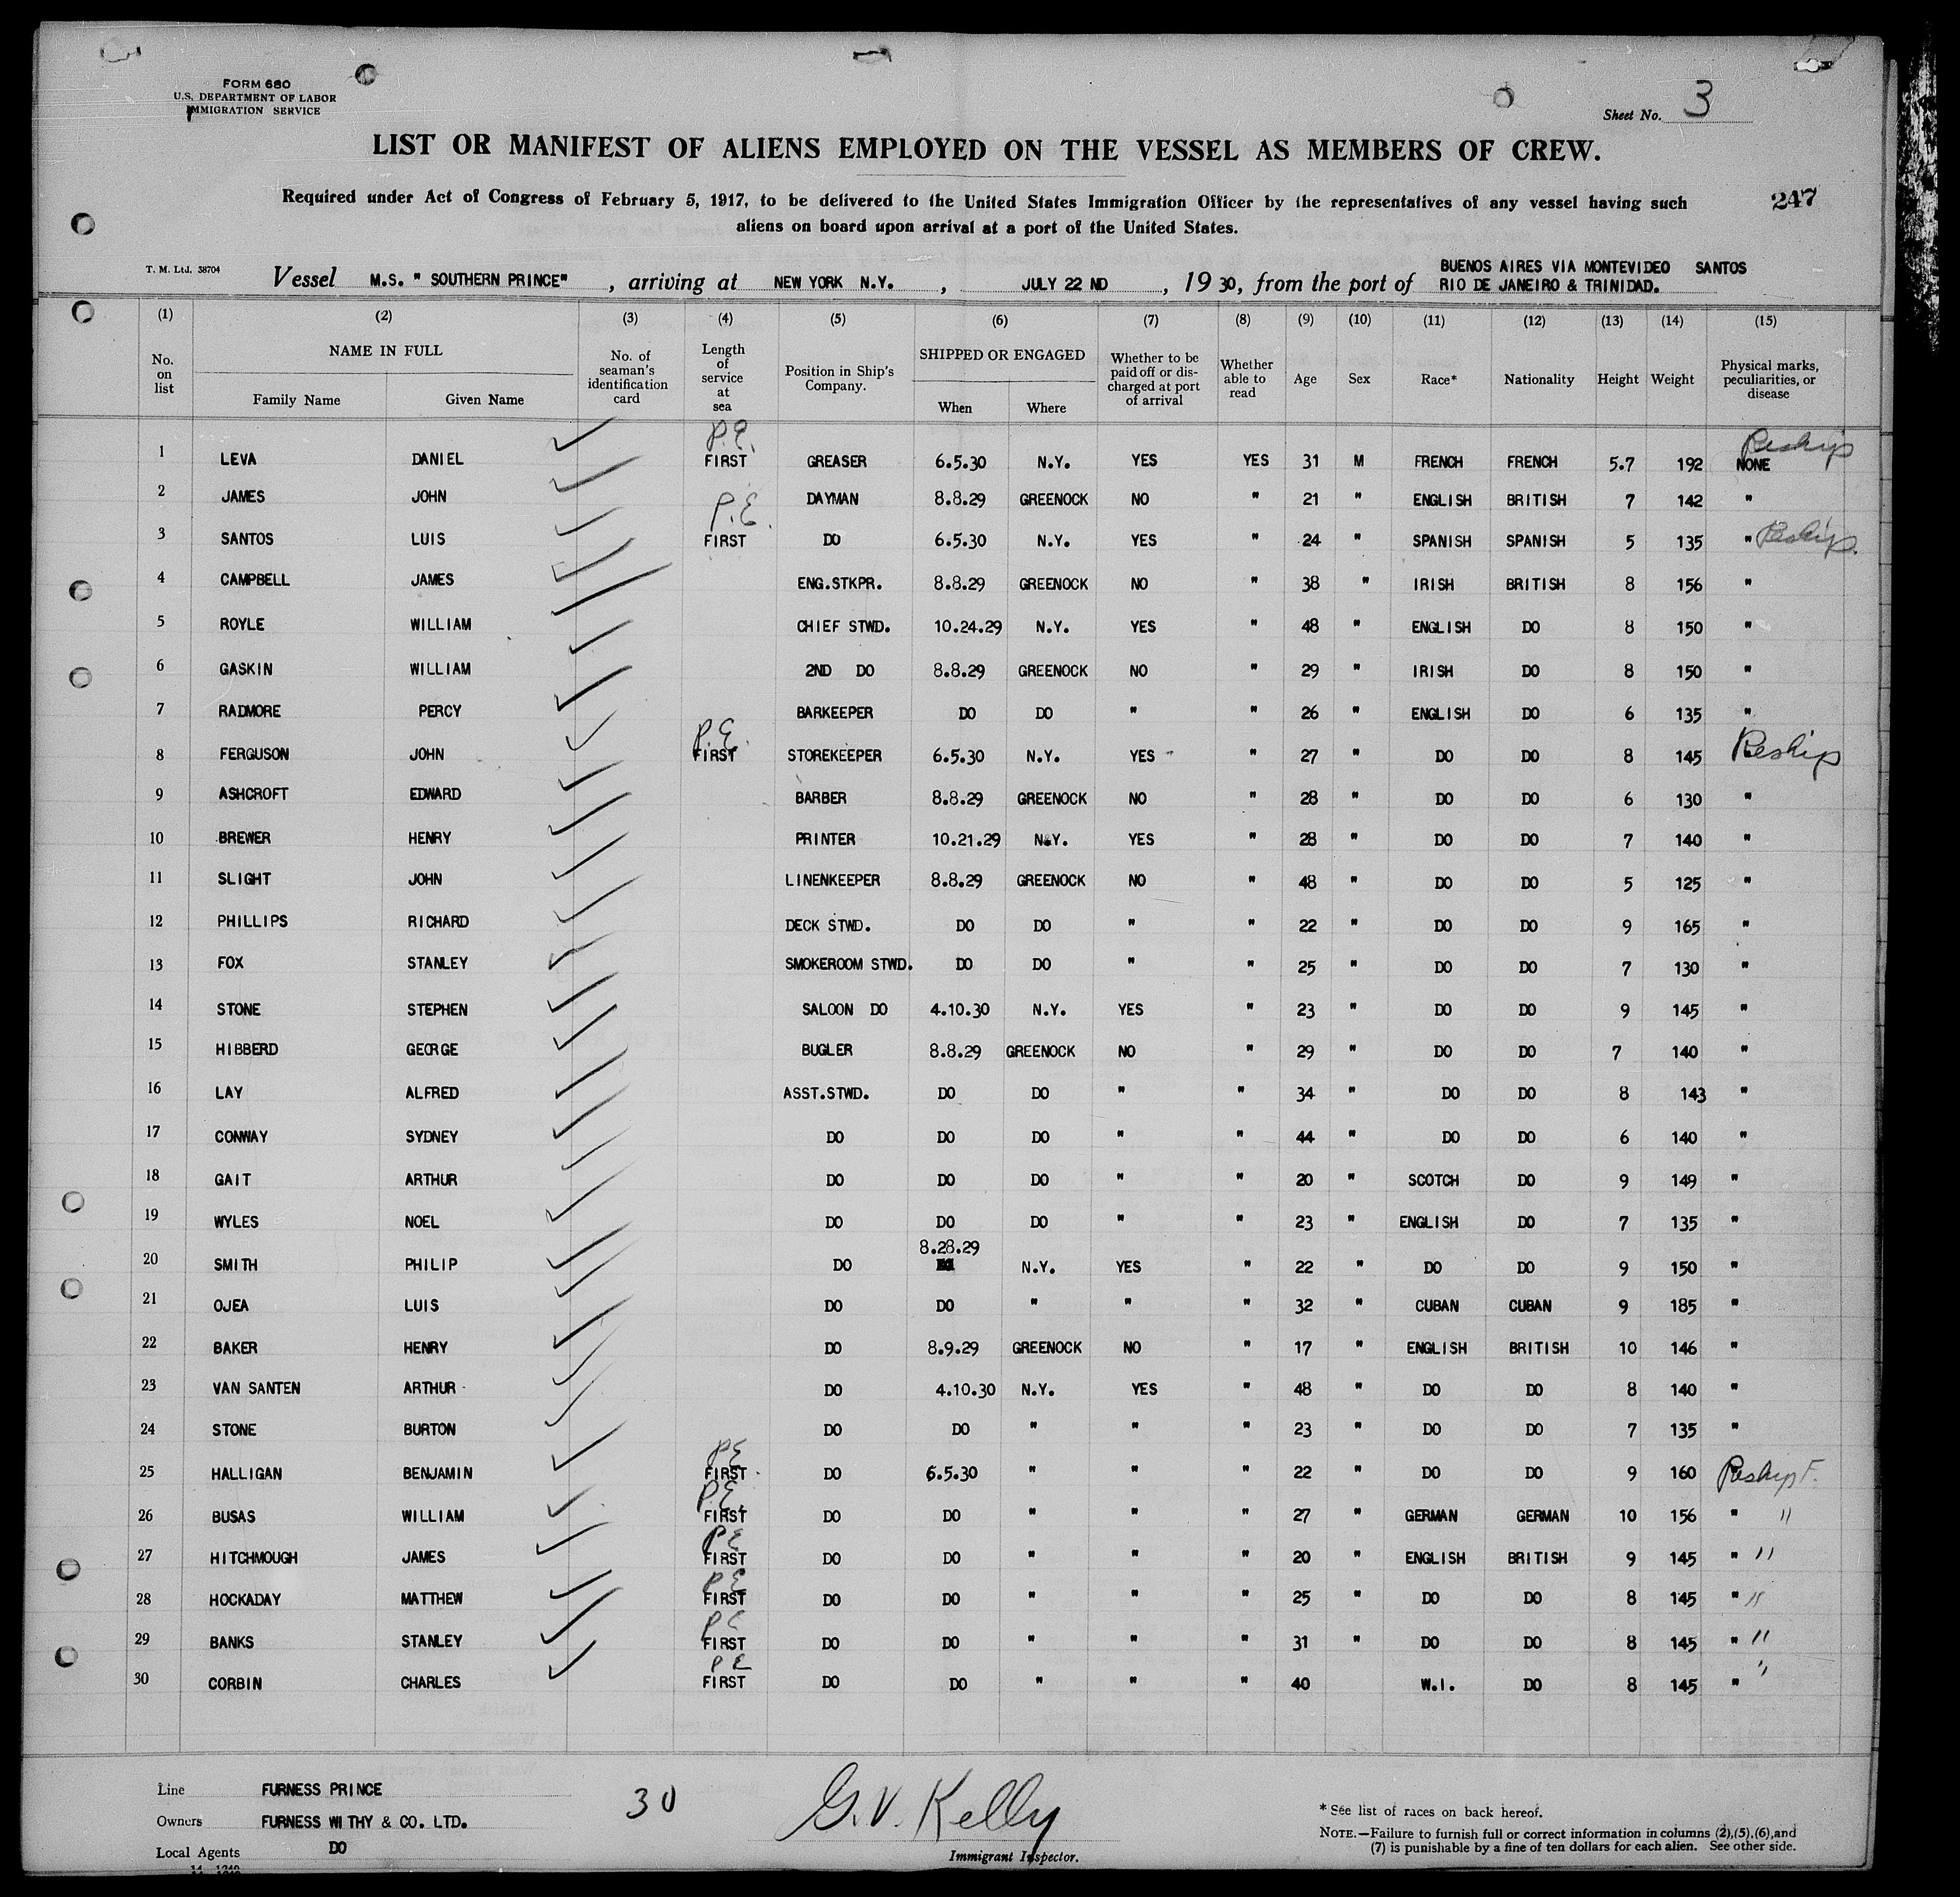 FORM 680
U.S. DEPARTMENT OF LABOR
IMMIGRATION SERVICE
Sheet No. 3
LIST OR MANIFEST OF ALIENS EMPLOYED ON THE VESSEL AS MEMBERS OF CREW.
Required under Act of Congress of February 5, 1917, to be delivered to the United States Immigration Officer by the representatives of any vessel having such
aliens on board upon arrival at a port of the United States.
247
T. M. Ltd. 38704
BUENOS AIRES VIA MONTEVIDEO SANTOS
Vessel M.S. " SOUTHERN PRINCE" , arriving at NEW YORK N.Y. , JULY 22 ND , 19 30, from the port of RIO DE JANEIRO & TRINIDAD.
(1) (2) (3) (4) (5) (6) (7) (8) (9) (10) (11) (12) (13) (14) (15)
No. on list NAME IN FULL Family Name Given Name No. of seaman's identification card Length of service at sea Position in Ship's Company. SHIPPED OR ENGAGED When Where Whether to be paid off or discharged at port of arrival Whether able to read Age Sex Race* Nationality Height Weight Physical marks, peculiarities, or disease
P.E. Reship
1 LEVA DANIEL FIRST GREASER 6.5.30 N.Y. YES YES 31 M FRENCH FRENCH 5.7 192 NONE
2 JAMES JOHN DAYMAN 8.8.29 GREENOCK NO " 21 " ENGLISH BRITISH 7 142 "
P.E.
3 SANTOS LUIS FIRST DO 6.5.30 N.Y. YES " 24 " SPANISH SPANISH 5 135 " Reship.
4 CAMPBELL JAMES ENG.STKPR. 8.8.29 GREENOCK NO " 38 " IRISH BRITISH 8 156 "
5 ROYLE WILLIAM CHIEF STWD. 10.24.29 N.Y. YES " 48 " ENGLISH DO 8 150 "
6 GASKIN WILLIAM 2ND DO 8.8.29 GREENOCK NO " 29 " IRISH DO 8 150 "
7 RADMORE PERCY BARKEEPER DO DO " " 26 " ENGLISH DO 6 135 "
P.E.
8 FERGUSON JOHN FIRST STOREKEEPER 6.5.30 N.Y. YES " 27 " DO DO 8 145 Reship
9 ASHCROFT EDWARD BARBER 8.8.29 GREENOCK NO " 28 " DO DO 6 130 "
10 BREWER HENRY PRINTER 10.21.29 N&Y. YES " 28 " DO DO 7 140 "
11 SLIGHT JOHN LINENKEEPER 8.8.29 GREENOCK NO " 48 " DO DO 5 125 "
12 PHILLIPS RICHARD DECK STWD. DO DO " " 22 " DO DO 9 165 "
13 FOX STANLEY SMOKEROOM STWD. DO DO " " 25 " DO DO 7 130 "
14 STONE STEPHEN SALOON DO 4.10.30 N.Y. YES " 23 " DO DO 9 145 "
15 HIBBERD GEORGE BUGLER 8.8.29 GREENOCK NO " 29 " DO DO 7 140 "
16 LAY ALFRED ASST.STWD. DO DO " " 34 " DO DO 8 143 "
17 CONWAY SYDNEY DO DO DO " " 44 " DO DO 6 140 "
18 GAIT ARTHUR DO DO DO " " 20 " SCOTCH DO 9 149 "
19 WYLES NOEL DO DO DO " " 23 " ENGLISH DO 7 135 "
20 SMITH PHILIP DO 8.28.29 N.Y. YES " 22 " DO DO 9 150 "
21 OJEA LUIS DO DO " " " 32 " CUBAN CUBAN 9 185 "
22 BAKER HENRY DO 8.9.29 GREENOCK NO " 17 " ENGLISH BRITISH 10 146 "
23 VAN SANTEN ARTHUR DO 4.10.30 N.Y. YES " 48 " DO DO 8 140 "
24 STONE BURTON DO DO " " " 23 " DO DO 7 135 "
PE
25 HALLIGAN BENJAMIN FIRST DO 6.5.30 " " " 22 " DO DO 9 160 Reship F.
P.E.
26 BUSAS WILLIAM FIRST DO DO " " " 27 " GERMAN GERMAN 10 156 " "
PE
27 HITCHMOUGH JAMES FIRST DO DO " " " 20 " ENGLISH BRITISH 9 145 " "
PE
28 HOCKADAY MATTHEW FIRST DO DO " " " 25 " DO DO 8 145 " "
PE
29 BANKS STANLEY FIRST DO DO " " " 31 " DO DO 8 145 " "
PE
30 CORBIN CHARLES FIRST DO DO " " " 40 W.I. DO 8 145 " "
Line FURNESS PRINCE
Owners FURNESS WITHY & CO. LTD.
Local Agents DO
30
G.V. Kelly
Immigrant Inspector.
* See list of races on back hereof.
NOTE.—Failure to furnish full or correct information in columns (2),(5),(6),and
(7) is punishable by a fine of ten dollars for each alien. See other side.